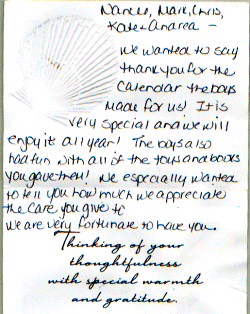 Mark, Chris,
Kate & Andrea —
We wanted to say
thank you for the
calendar the boys
made for us! It is
very special and we will
enjoy it all year! The boys also
had fun with all of the toys and books
you gave them! We especially wanted
to tell you how much we appreciate
the care you give to
we are very fortunate to have you.
Thinking of your
thoughtfulness
with special warmth
and gratitude.